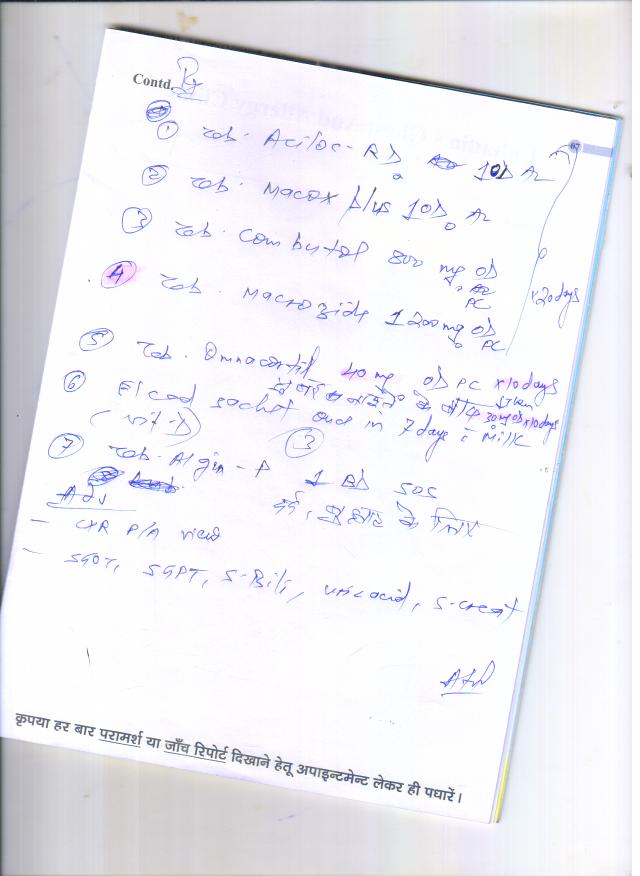 Contd. Rx
07
① Tab. Aciloc-RD 1OD A2
② Tab. Macox plus 1OD A2
③ Tab. Combutol 800 mg OD
A2
PC
x 20 days
④ Tab. Macrozide 1200mg OD
PC
⑤ Tab. Omnacortil 40 mg OD PC x 10 days
then
30mg OD x 10 days
⑥ El cad sachet once in 7 days c milk
③
⑦ Tab. Algin-P 1 BD SOS
दर्द, बुखार के लिए
Adv
- CXR P/A view
- SGOT, SGPT, S-Bili, uric acid, S-creat
कृपया हर बार परामर्श या जाँच रिपोर्ट दिखाने हेतू अपाइन्टमेन्ट लेकर ही पधारें।